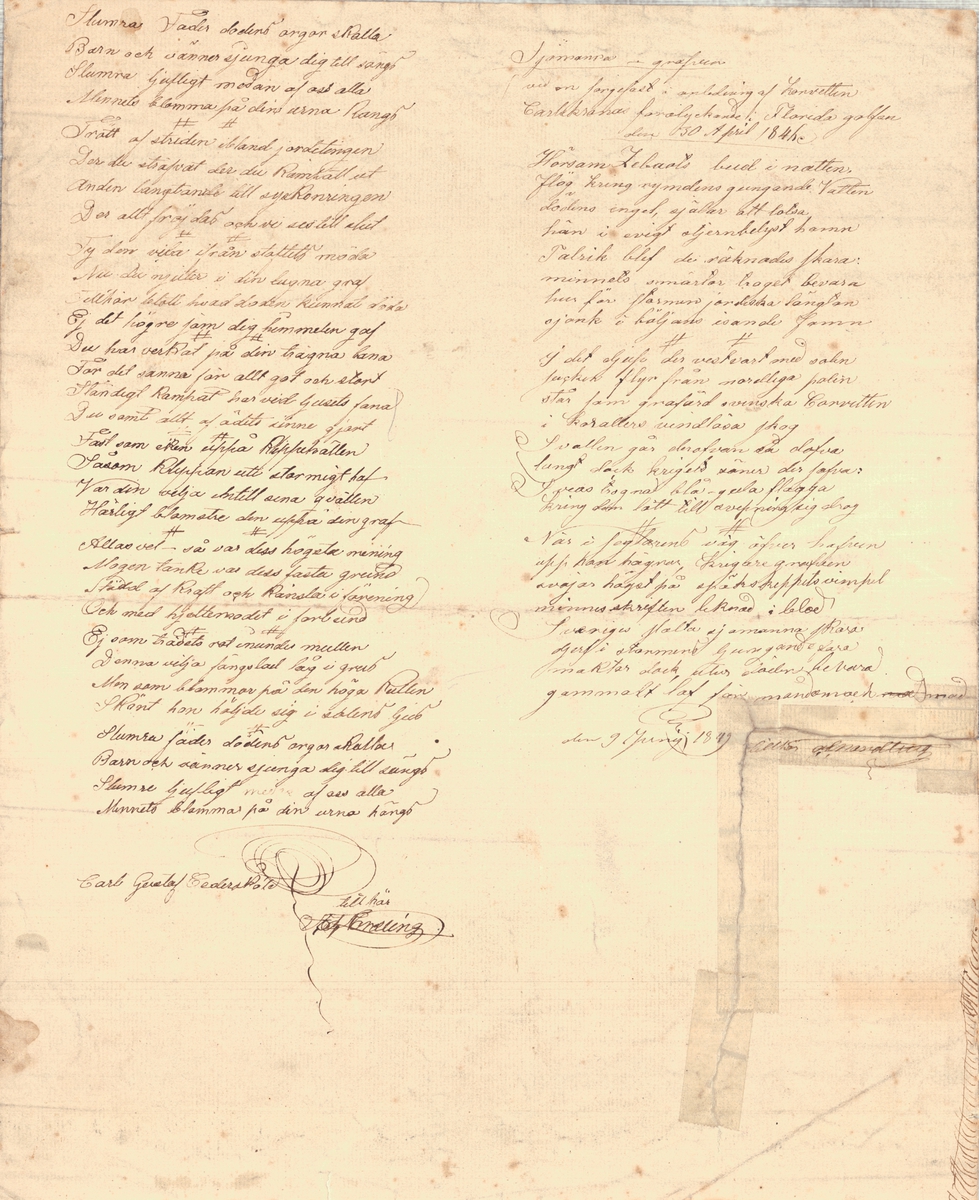 Slumra Fader dödens orgor skalla
Barn och vänner sjunga dig till sängs
Slumra ljufligt medan af oss alla
Minnets blomma på din urna hängs
Trött af striden ibland jordetingen
Der du sträfvat der du kämpat ut
Anden längtande till syskonringen
Der allt fröjdas och vi ses till slut
Ty den vila ifrån stoftets möda
Nu du njuter i din lugna graf
Tillhör blott hvad döden kunnat döda
Ej det högre som dig himmelen gaf
Du har verkat på din trägna bana
För det sanna för allt got och stort
Ständigt kämpat har vid ljusets fana
Du samt allt af ädelts sinne gjort
Fast som eken uppå klippehällen
Såsom klippan uti stormigt haf
Var din vilja intill sena qvällen
Härligt blomstre den uppå din graf
Allas vel så var dess högsta mening
Mogen tanke var dess fasta grund
Född af kraft och känsla i förening
Och med hjeltemodet i förbund
Ej som trädets rot inunder mullen
Denna vilja fängslad låg i grus
Men som blommor på den höga kullen
Skönt hon höljde sig i solens ljus
Slumra fader dödens orgor skallar
Barn och vänner sjunga dig till sängs
Slumre ljufligt meda af oss alla
Minnets blomma på din urna hängs
Carl Gustaf Cedersköld
till hör
Sjömanna grafven
vid en sorgefest i anledning af Korvetten
Carlskronas förolyckande i Florida golfen
den 30 April 1846
Hörsam Zebaots bud i natten
flög kring rymdens gungande Vatten
dödens engel, själar att lotsa
hän i evigt stjernbelyst hamn
Talrik blef de räknades skara:
minnets smärtor taget bevara
hur för stormen jordiska längtan
sjönk i böljans isande famn
I det djup der vestvart med solen
sucken flyr från nordliga polen
står som grafvård svenska Corvetten
i korallers ändlösa skog
Svallen går derofvan så dofva
lungt dock krigets söner der sofva:
Sveas trogna blå-gula flagga
kring dem lätt till svepning sig drog
När i segrarens väg öfver hafven
upp han hägnar Krigare grafven
svajar högst på sjökskeppets vimpel
minnes skriften teknad i blod
Sveriges stolta sjömanna skara
djerf i stormens ljungande fara
maktar dock utur döden bevara
gammalt lof för mandom och mod
den 9 Junij 1849